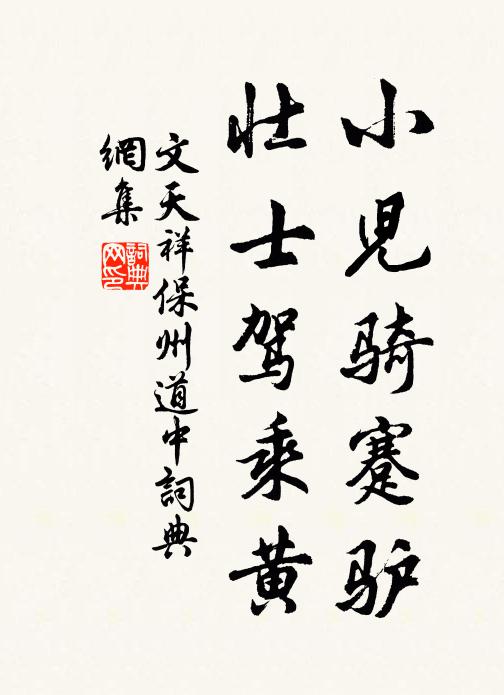 小児骑蹇驴
壮士驾乘黄
文天祥保州道中詞典
網集
詞典网印